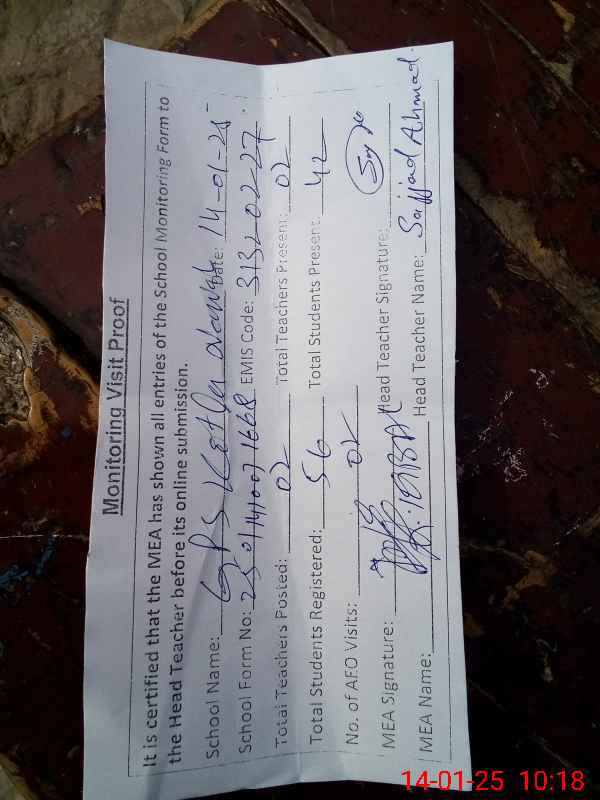 Monitoring Visit Proof
It is certified that the MEA has shown all entries of the School Monitoring Form to
the Head Teacher before its online submission.
School Name: GPS Kotla Nawab Date: 14-01-25
School Form No: EMIS Code: 31320227
Total Teachers Posted: 02 Total Teachers Present: 02
Total Students Registered: 56 Total Students Present: 42
No. of AEO Visits: 02
MEA Signature: Head Teacher Signature:
MEA Name: Head Teacher Name: Sajjad Ahmad.
14-01-25 10:18